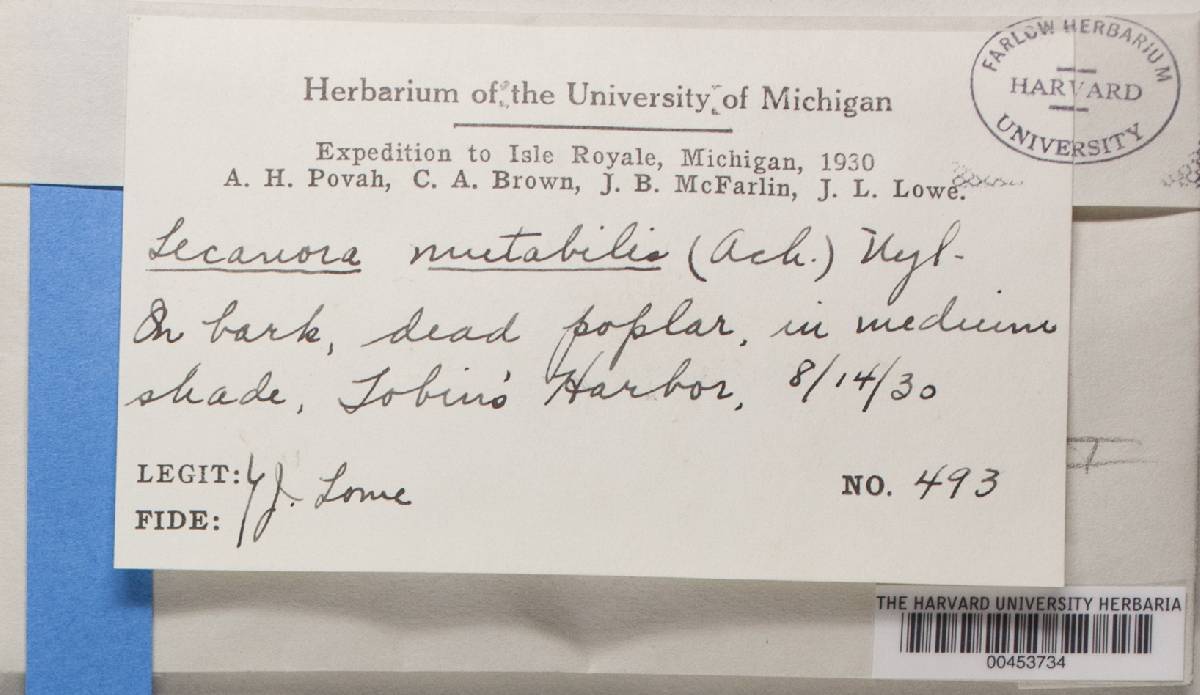 FARLOW HERBARIUM
HARVARD
UNIVERSITY
Herbarium of the University of Michigan
Expedition to Isle Royale, Michigan, 1930
A. H. Povah, C. A. Brown, J. B. McFarlin, J. L. Lowe.
Lecanora mutabilis (Ach.) Nyl.
On bark, dead poplar, in medium
shade, Tobin's Harbor, 8/14/30
LEGIT: J. Lowe
FIDE:
NO. 493
THE HARVARD UNIVERSITY HERBARIA
00453734